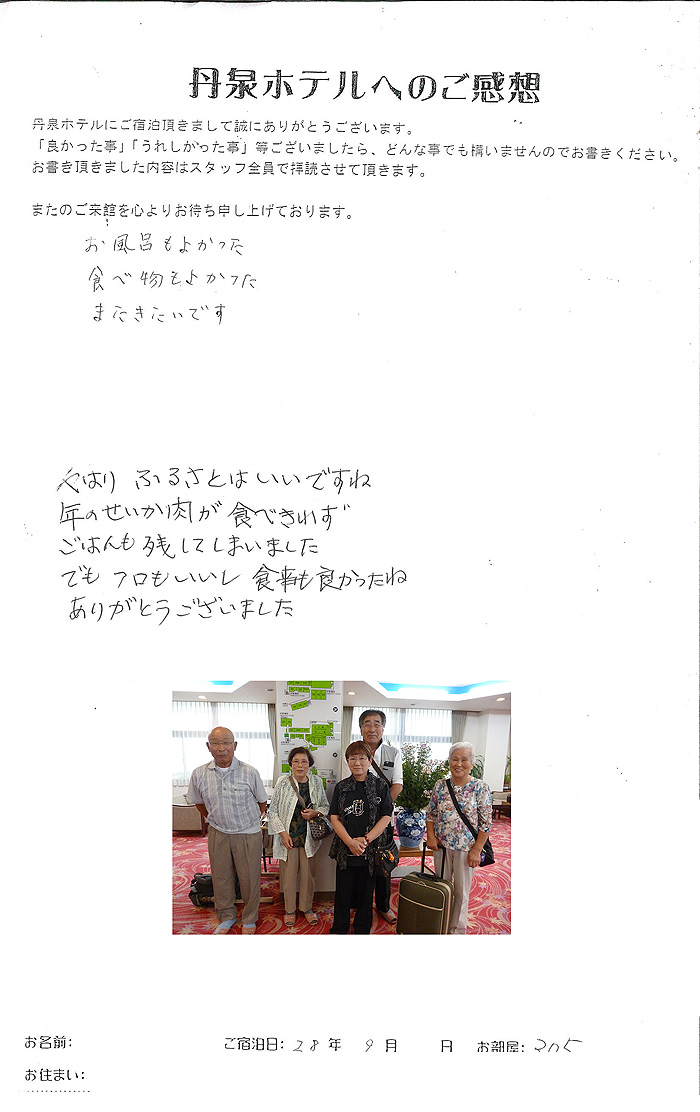 丹泉ホテルへのご感想
丹泉ホテルにご宿泊頂きまして誠にありがとうございます。
「良かった事」「うれしかった事」等ございましたら、どんな事でも構いませんのでお書きください。
お書き頂きました内容はスタッフ全員で拝読させて頂きます。
またのご来館を心よりお待ち申し上げております。
お風呂もよかった
食べ物もよかった
またきたいです
やはり ふるさとはいいですね
年のせいか肉が食べきれず
ごはんも残してしまいました
でも フロもいいし 食事も良かったね
ありがとうございました
お名前: ご宿泊日: 28年 9月 日 お部屋: 305
お住まい: